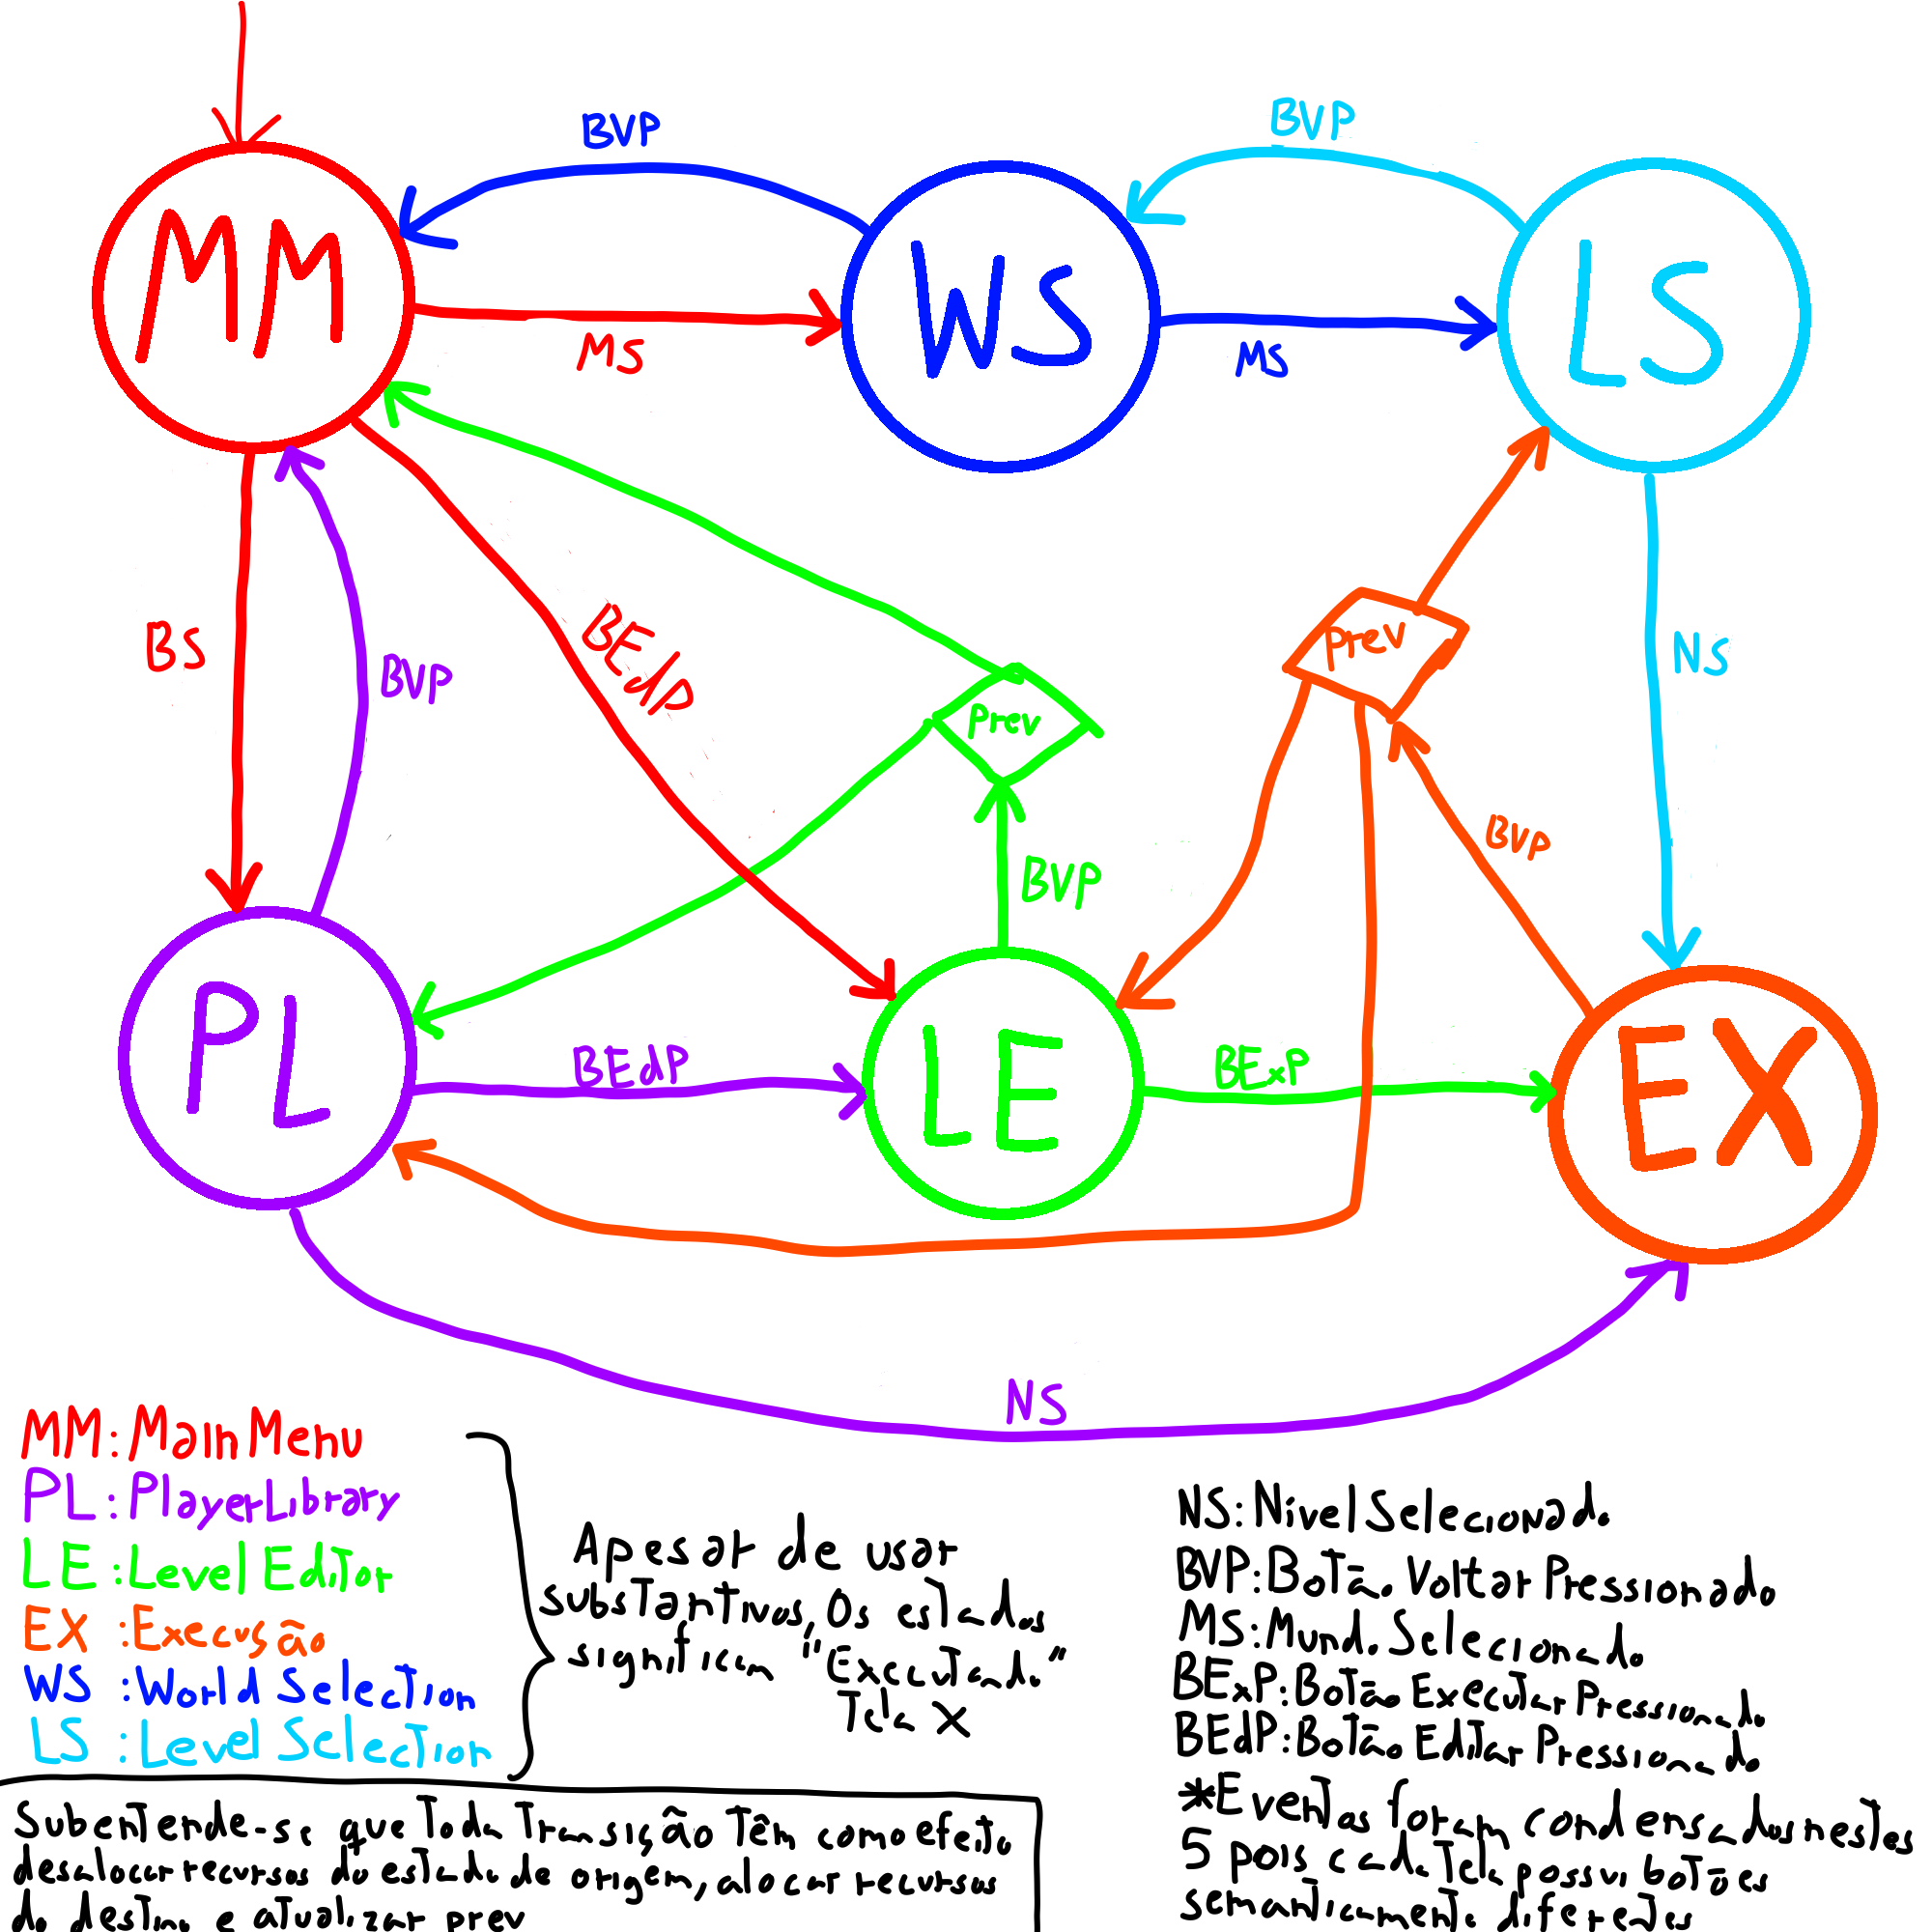 BVP
BVP
MM
WS
LS
MS
MS
BS
BVP
BEdP
Prev
Prev
NS
BVP
BVP
PL
BEdP
LE
BExP
EX
NS
MM: Main Menu
PL: PlayerLibrary
LE: Level Editor
EX: Execução
WS: World Selection
LS: Level Selection
Apesar de usar
substantivos, Os estados
significam "Executando
Tela X"
NS: Nível Selecionado
BVP: Botão Voltar Pressionado
MS: Mundo Selecionado
BExP: Botão Executar Pressionado
BEdP: Botão Editar Pressionado
*Eventos foram condensados nestes
5 pois cada tela possui botões
semanticamente diferentes
Subentende-se que toda Transição Têm como efeito
desalocar recursos do estado de origem, alocar recursos
do destino e atualizar prev